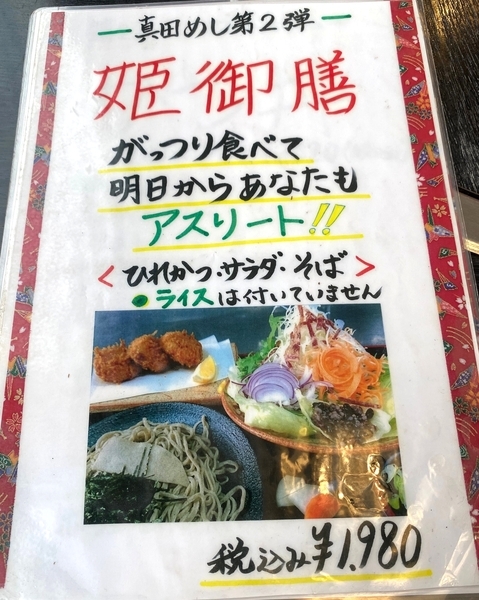 ー真田めし第2弾ー
姫御膳
がっつり食べて
明日からあなたも
アスリート!!
<ひれかつ・サラダ・そば>
●ライスは付いていません
税込み¥1,980